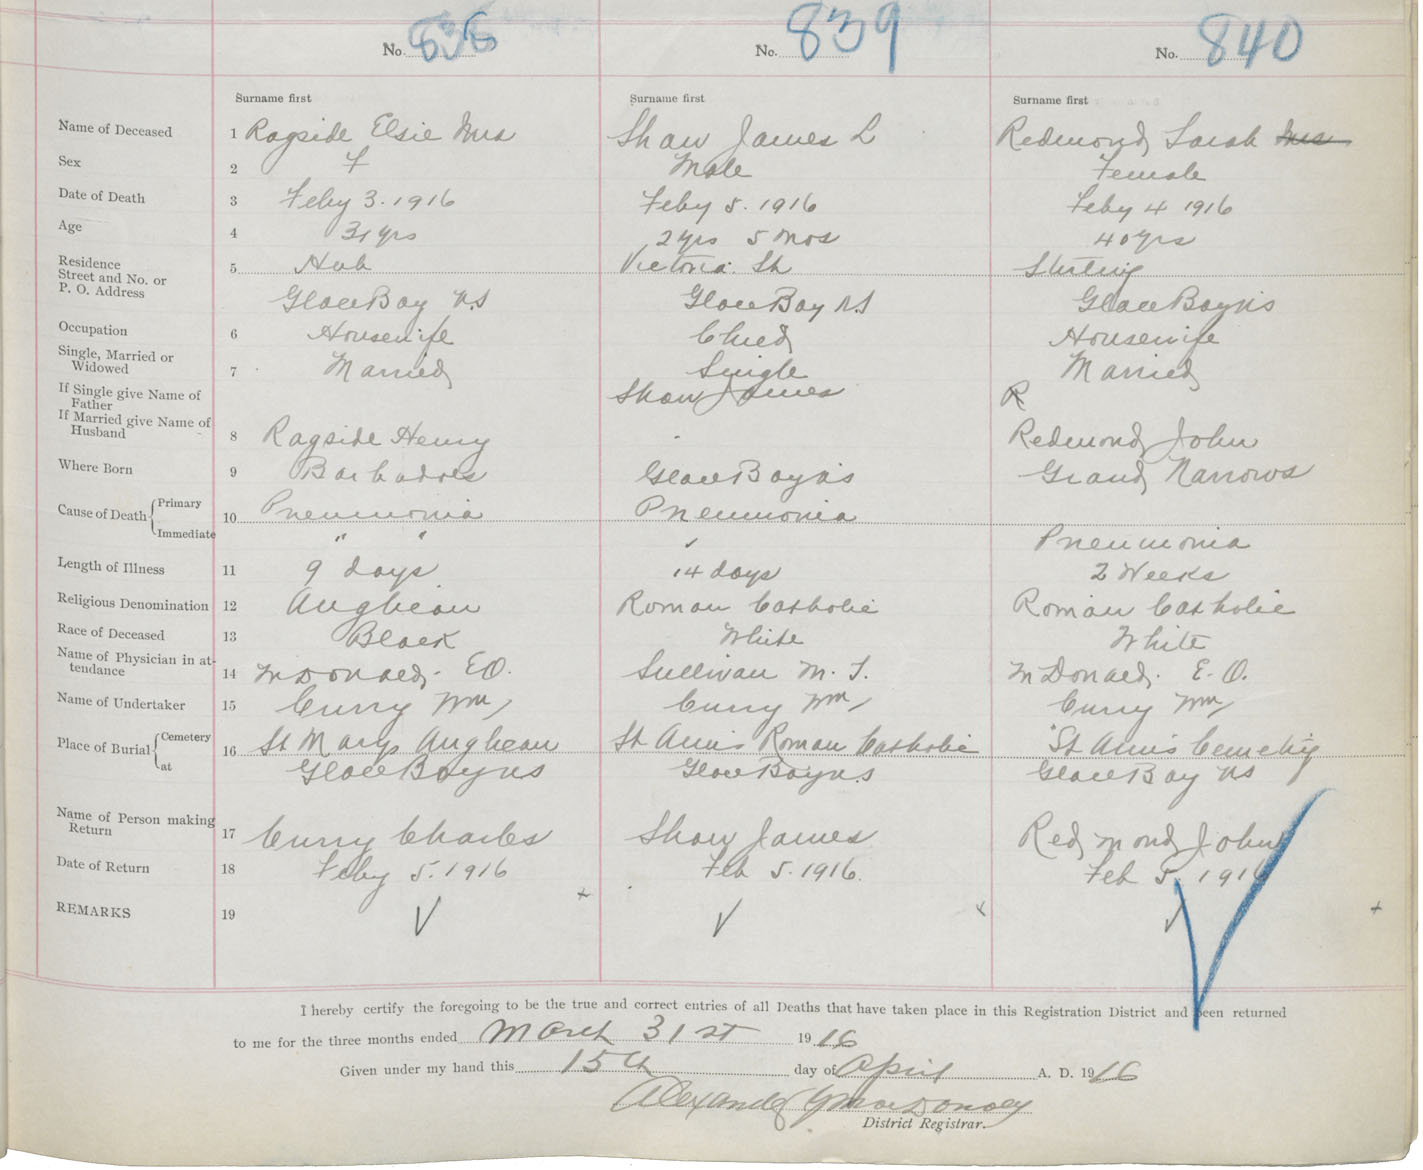 No. 838 No. 839 No. 840
Surname first Surname first Surname first
Name of Deceased 1 Ragside Elsie Mrs Shaw James L Redmond Sarah Mrs
Sex 2 F Male Female
Date of Death 3 Feby 3. 1916 Feby 5. 1916 Feby 4 1916
Age 4 31 yrs 2 yrs 5 mos 40 yrs
Residence 5 Hub Victoria St Sterling
Street and No. or
P. O. Address Glace Bay N.S Glace Bay N.S Glace Bay N S
Occupation 6 Housewife Child Housewife
Single, Married or
Widowed 7 Married Single Married
If Single give Name of
Father Shaw James R
If Married give Name of
Husband 8 Ragside Henry Redmond John
Where Born 9 Barbadoes Glace Bay N S Grand Narrows
Cause of Death Primary 10 Pneumonia Pneumonia
Immediate " " Pneumonia
Length of Illness 11 9 days 14 days 2 Weeks
Religious Denomination 12 Anglican Roman Catholic Roman Catholic
Race of Deceased 13 Black White White
Name of Physician in at-
tendance 14 McDonald. E O. Sullivan M. T. McDonald. E. O.
Name of Undertaker 15 Curry Wm Curry Wm Curry Wm
Place of Burial Cemetery 16 St Marys Anglican St Anns Roman Catholic St Anns Cemetery
at Glace Bay N S Glace Bay N.S Glace Bay N S
Name of Person making
Return 17 Curry Charles Shaw James Redmond John
Date of Return 18 Feby 5. 1916 Feb 5. 1916. Feb 5. 1916
REMARKS 19
I hereby certify the foregoing to be the true and correct entries of all Deaths that have taken place in this Registration District and been returned
to me for the three months ended March 31st 1916
Given under my hand this 15th day of April A. D. 1916
Alexander
District Registrar.